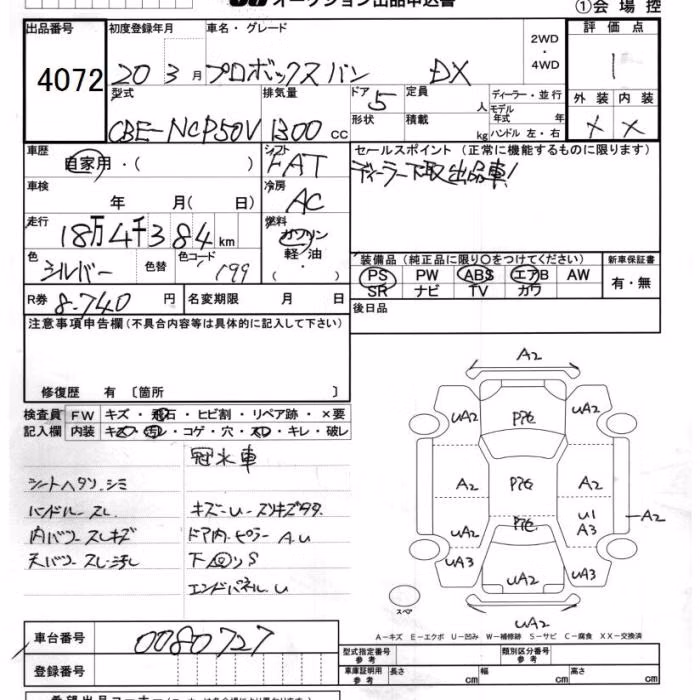 オークション出品申込書
①会場控
出品番号
4072
初度登録年月
20 3月
車名・グレード
プロボックスバン DX
2WD
・
4WD
評価点
1
型式
CBE-NCP50V
排気量
1300 cc
ドア
5
形状
定員
人
積載
kg
ディーラー・並行
モデル年式 年
ハンドル 左・右
外装 内装
× ×
車歴
自家用・( )
シフト
FAT
セールスポイント(正常に機能するものに限ります)
ディーラー下取出品車!
車検
年 月( 日)
冷房
AC
走行
18万4千384km
燃料
ガソリン
軽油
・( )
色
シルバー
色替
色コード
199
装備品(純正品に限り○をつけてください)
新車保証書
PS PW ABS エアB AW
SR ナビ TV カワ
有・無
R券 8.740円
名変期限 月 日
後日品
注意事項申告欄(不具合内容等は具体的に記入して下さい)
修復歴 有〔箇所 〕
検査員 FW キズ・飛石・ヒビ割・リペア跡・×要
記入欄 内装 キズ・汚レ・コゲ・穴・スレ・キレ・破レ
冠水車
シートヘタリ.シミ
ハンドル.スレ
キズ-U-スリキズタタ
内バリ-スレキズ
ドア内.ピラー A.U
天バリ-スレ.汚レ
下回リS
エンドパネル.U
A2
UA2 UA2
A2 A2
UA2 U1
A3
A2
UA3 UA2 UA3
スペア
UA2
A-キズ E-エクボ U-凹み W-補修跡 S-サビ C-腐食 XX-交換済
車台番号
0080727
登録番号
型式指定番号
参考
類別区分番号
参考
車庫証明用
参考
長さ cm 幅 cm 高さ cm